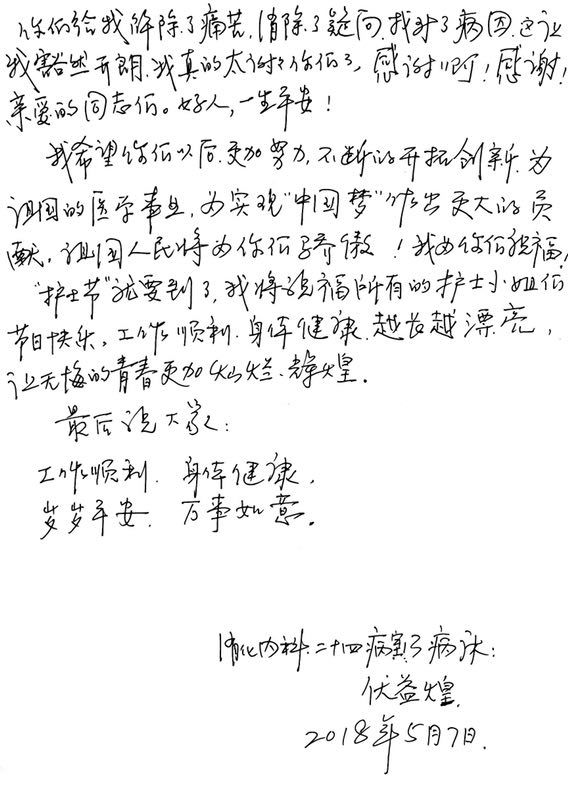 你们给我解除了痛苦,消除了疑问,找到了病因,这让
我豁然开朗,我真的太谢谢你们了,感谢啊!感谢!
亲爱的同志们。好人,一生平安!
我希望你们以后更加努力,不断的开拓创新,为
祖国的医学事业,为实现“中国梦”作出更大的贡
献,祖国人民将为你们骄傲!我为你们祝福,
“护士节”就要到了,我将祝福所有的护士小姐们
节日快乐,工作顺利.身体健康.越长越漂亮,
让无悔的青春更加灿烂、辉煌.
最后祝大家:
工作顺利.身体健康.
岁岁平安.万事如意.
消化内科:二十四病室3病床:
伏益煌
2018年5月7日.